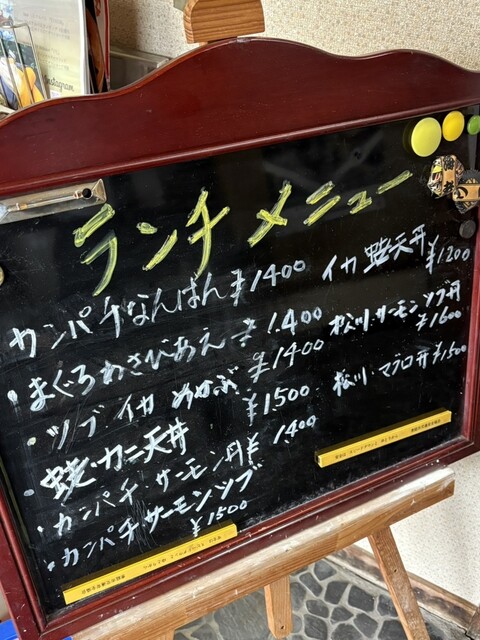 ランチメニュー
カンパチなんばん ¥1400
・まぐろわさびあえ ¥1.400
・ツブ・イカ めかぶ ¥1400
・蛯・カニ天丼 ¥1500
・カンパチ・サーモン丼 ¥1400
・カンパチサーモンツブ
¥1500
イカ 蛯天丼
¥1200
松川・サーモンツブ丼
¥1600
松川・マグロ丼 ¥1500
Instagram